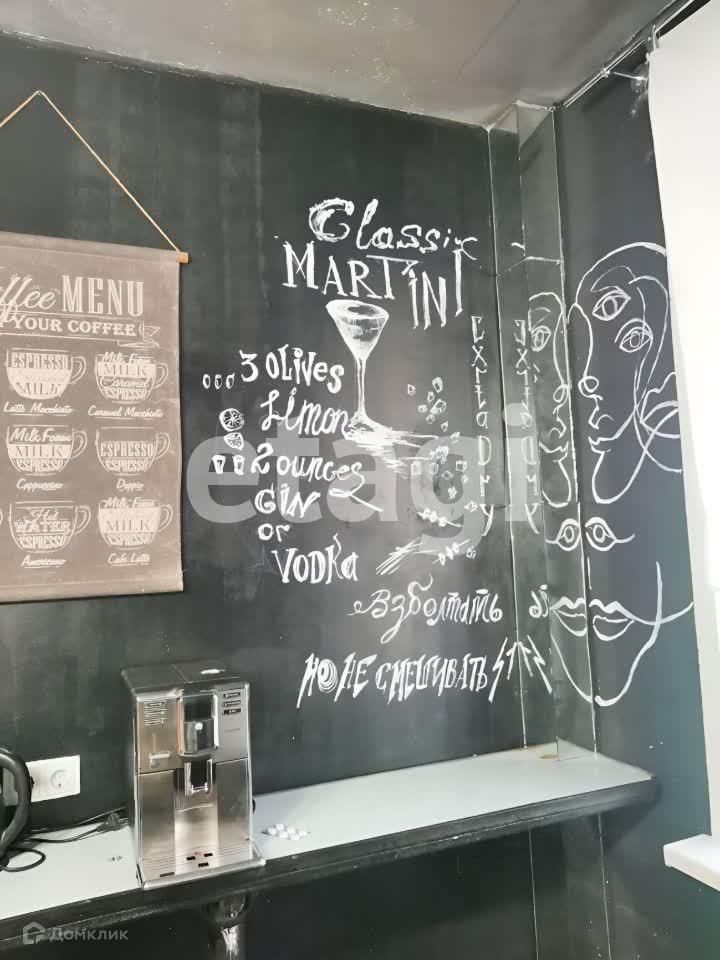 Classic
MARTINI
3 OLives
Limon
2 ounces
GIN
or
VODKa
Взболтать
НО НЕ СМЕШИВАТЬ
ffee MENU
YOUR COFFEE
ESPRESSO
MILK
Latte Macchiato
Milk Foam
MILK
Caramel
ESPRESSO
Caramel Macchiato
Milk Foam
MILK
ESPRESSO
Cappuccino
ESPRESSO
Doppio
Hot
WATER
ESPRESSO
Americano
Milk Foam
MILK
ESPRESSO
Cafe Latte
etagi
Домклик